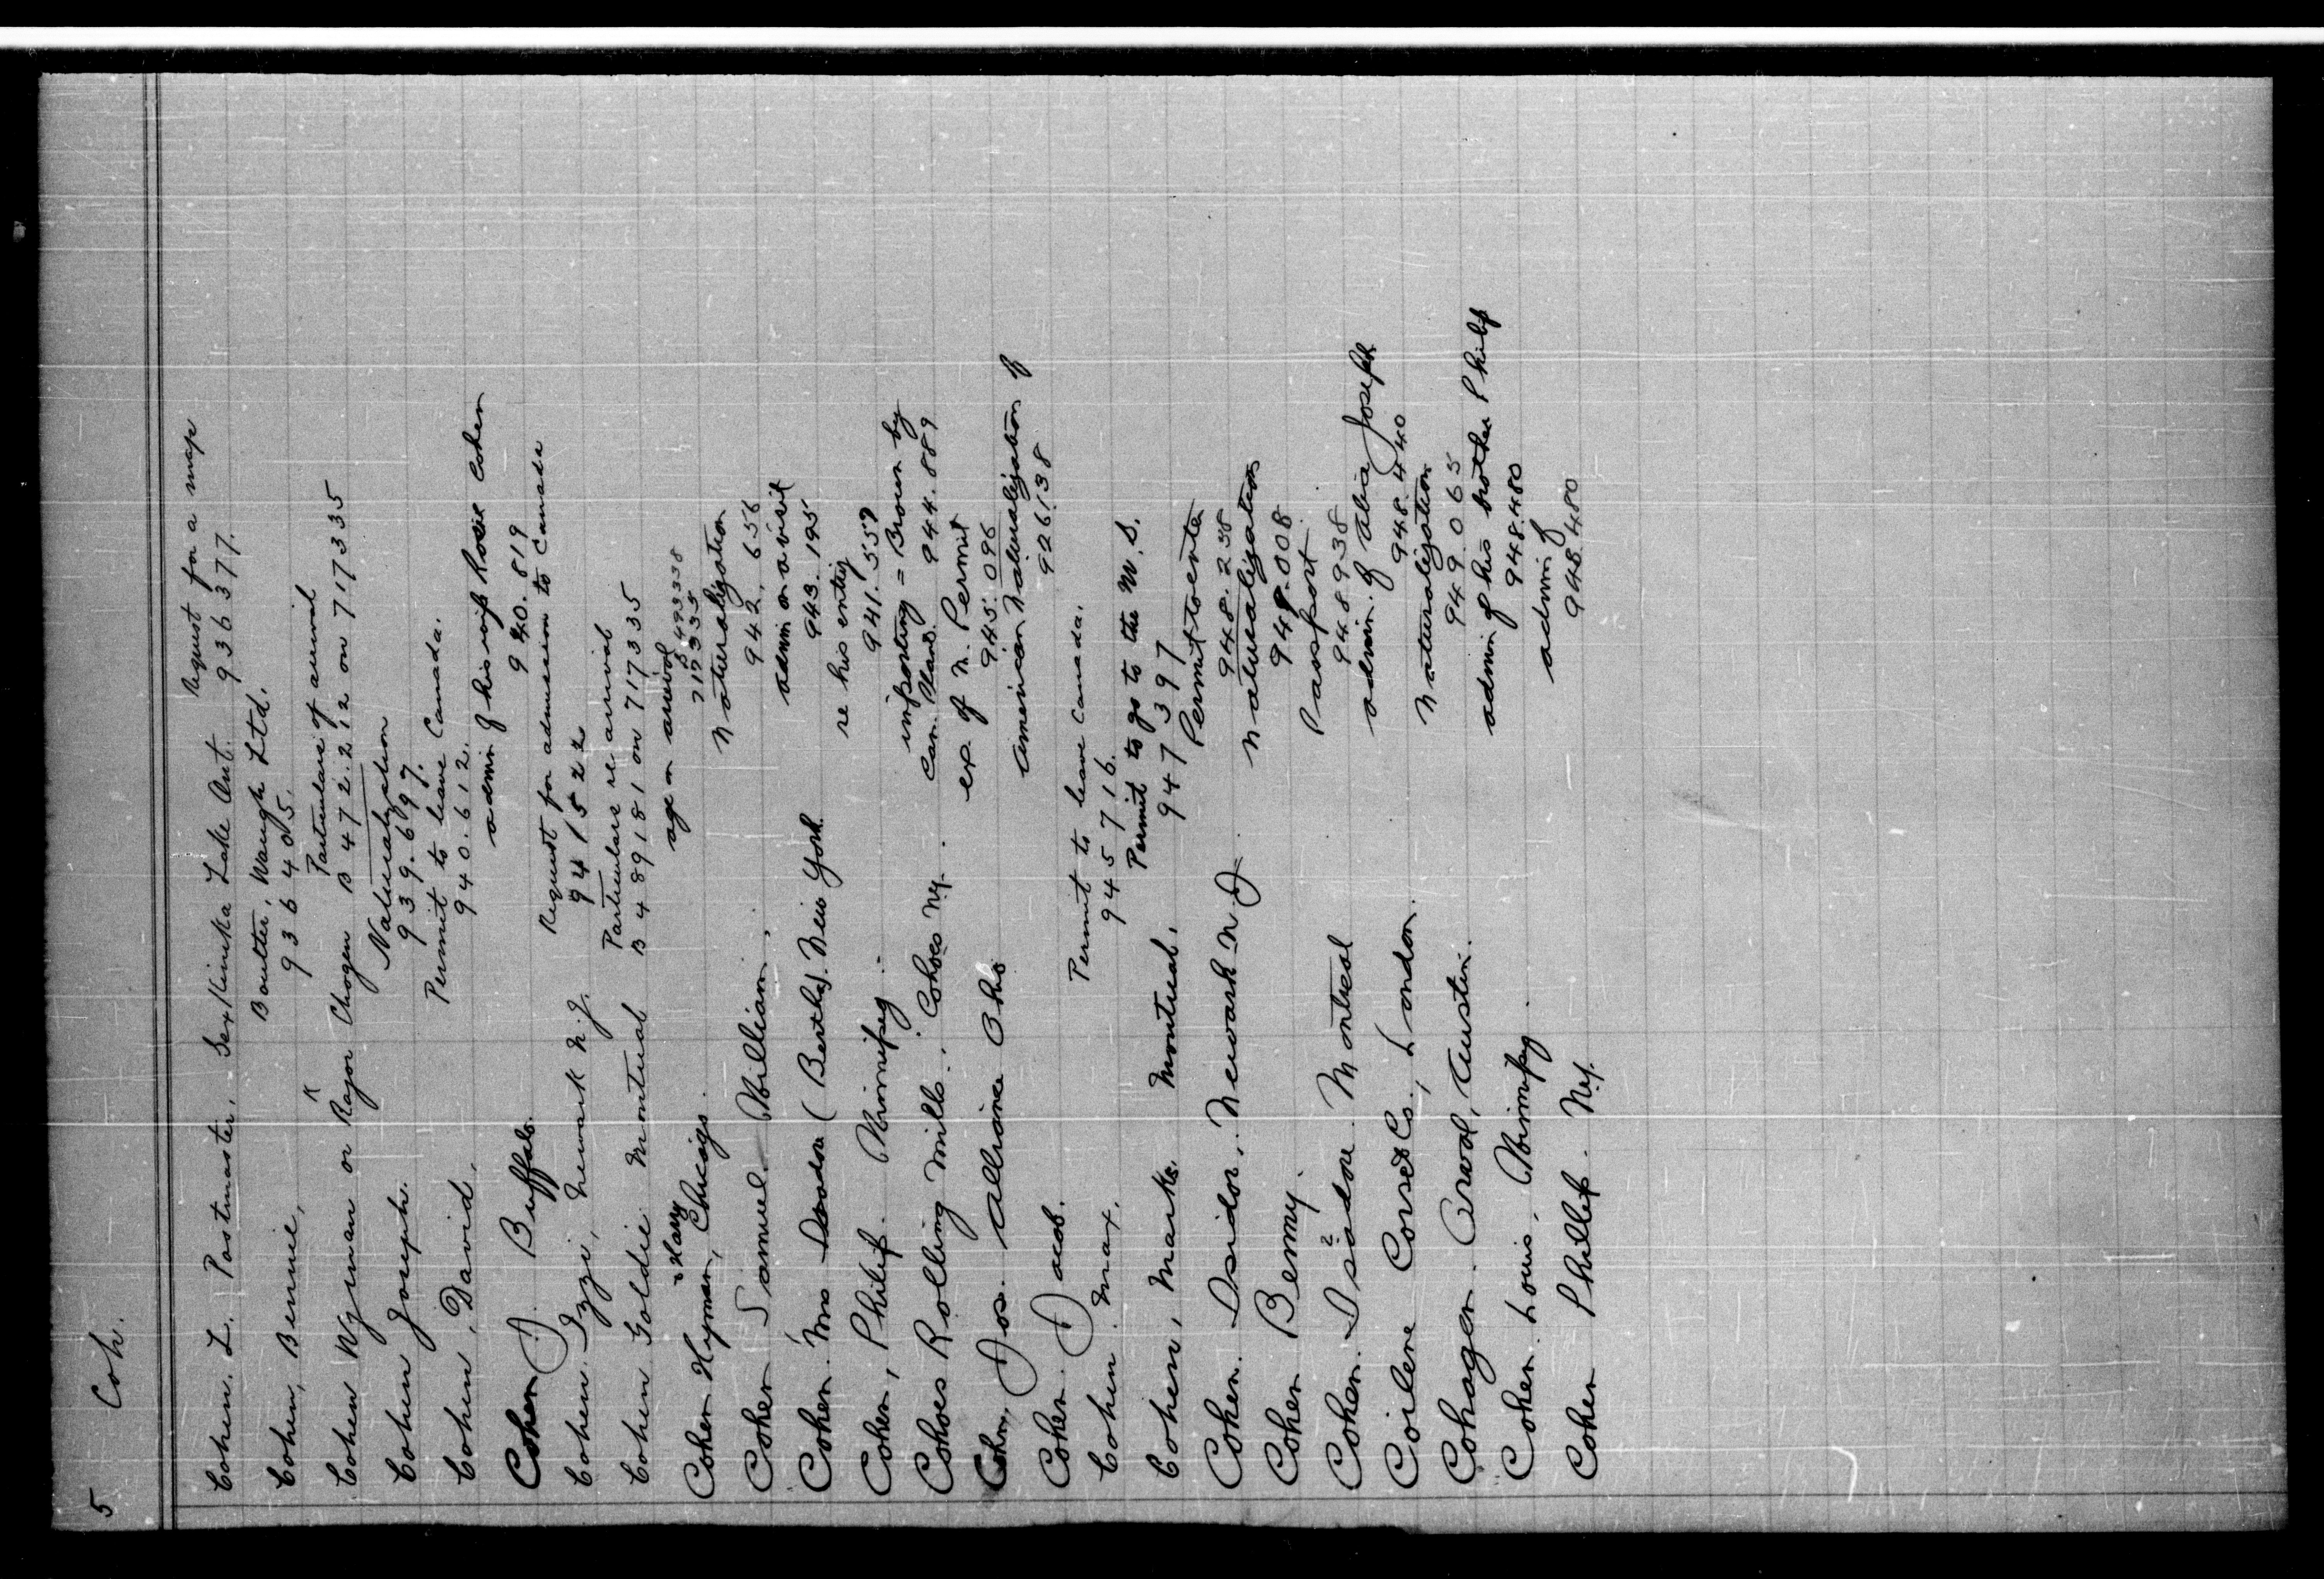 5 Coh.
Cohen. L. Postmaster, Lake Ont. Request for a map 936377.
Cohen, Bennie, Boulter, Waugh Ltd. 936405.
Cohen Wyman or Rajor Chogen Particulars of arrival B 472.212 on 717335
Cohen Joseph. Naturalization 939.697.
Cohen, David. Permit to leave Canada. 940.612.
Cohen J. Buffalo. admin of his wife Rosie Cohen 940.819
Cohen Izzi, Newark N.J. Request for admission to Canada 941522
Cohen Goldie Montreal Particulars re arrival B 489181 on 717335
Cohen Hyman, Harry Chicago. age on arrival 717335
Cohen Samuel. William. Naturalization 942.656
Cohen. Mrs (Bertha). New York. admin on a visit 943.195
Cohen, Philip. Winnipeg. re his entry 941.557
Cohoes Rolling Mills. Cohoes NY. importing = Brown by Can. 944.889
Cohn, Jos. Alliance Ohio ex. of N. Permit 945.096
Cohen. Jacob. American Naturalization of 926138
Cohen. Max. Permit to leave Canada. 945716.
Cohen, Marks. Montreal. Permit to go to the U.S. 947397
Cohen. Isidor, Newark N.J. Permit to enter 948.238
Cohen Benny. Naturalization 949.008
Cohen. Isadore Montreal Passport 948938
Coilene Corset Co., London. admin. of Joseph 948.440
Cohagen. Austin. Naturalization 949.065
Cohen. Louis, Winnipeg. admin of his brother Philip 948.480
Cohen Phillip. N.Y. admin of 948.480